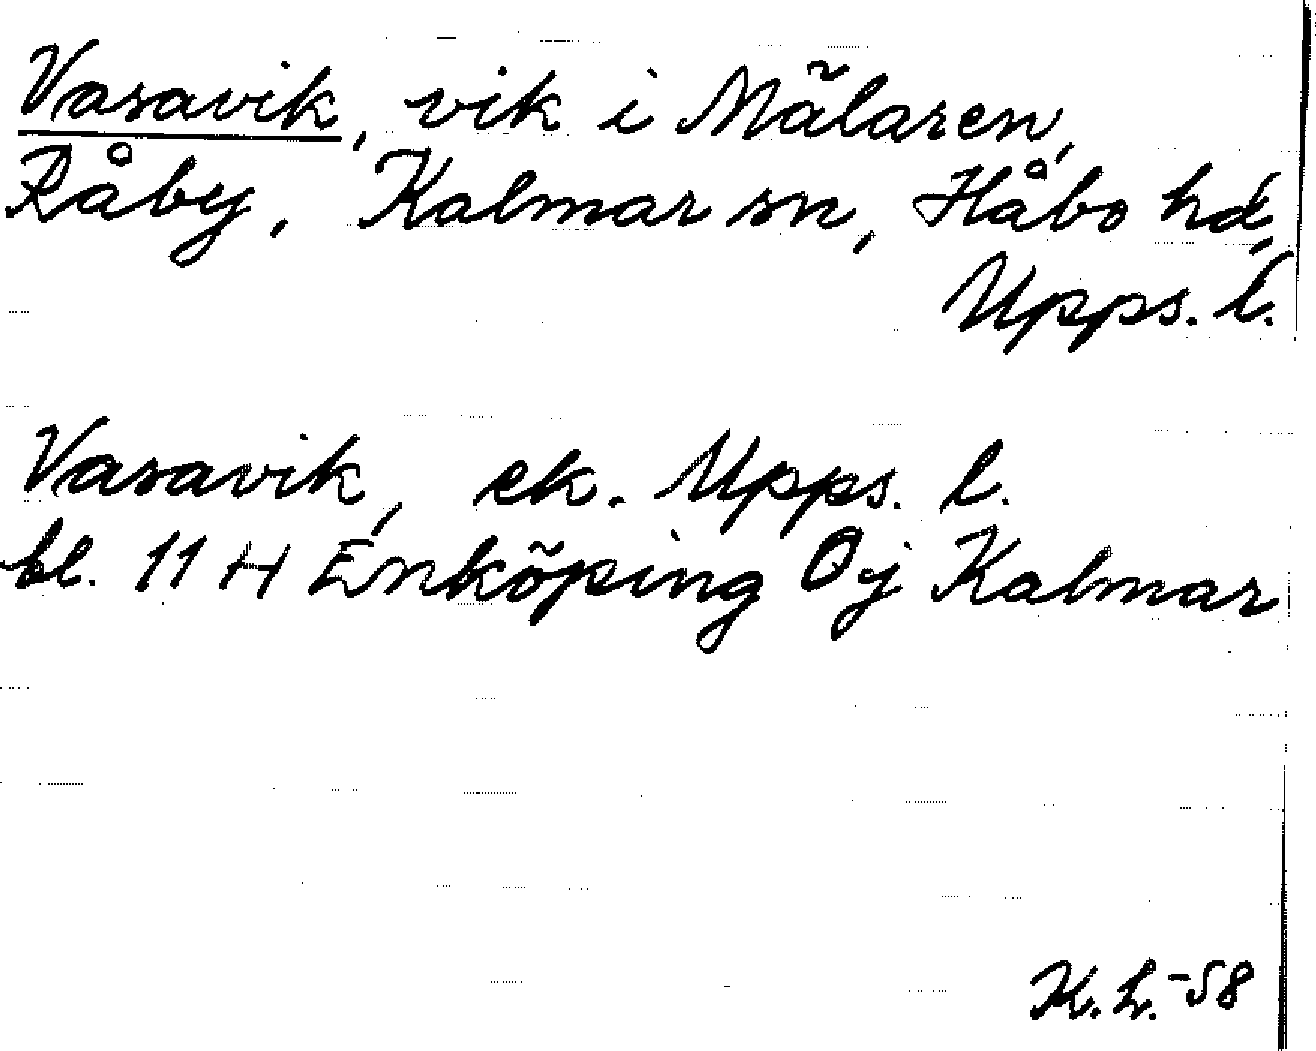 Vasavik, vik i Mälaren,
Råby, Kalmar sn, Håbo hd,
Upps. l.
Vasavik, ek. Upps. l.
bl. 11 H Enköping Öj Kalmar
K.L. -58